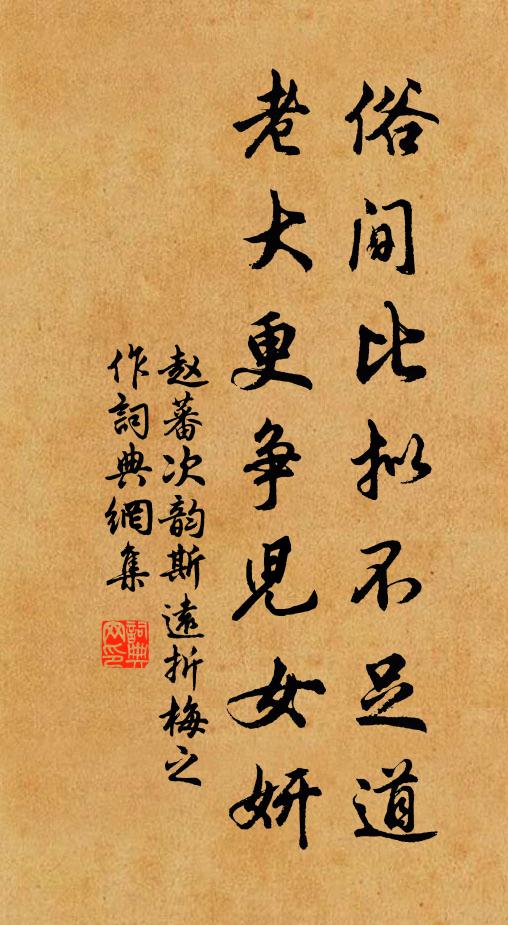 俗间比拟不足道
老大更争児女妍
赵蕃次韵斯遠折梅之
作詞典網集
詞典
网印